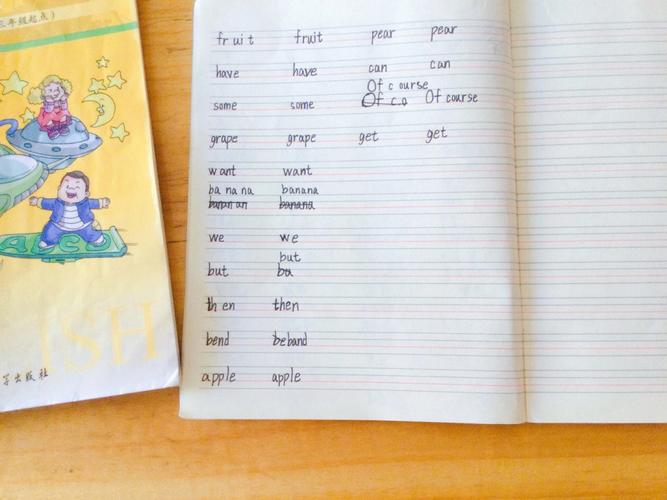 三年级起点)
ISH
出版社
fruit fruit pear pear
have have can can
Of course
some some Of c.o Of course
grape grape get get
want want
banana banana
banana
we we
but
but bu
then then
bend beband
apple apple